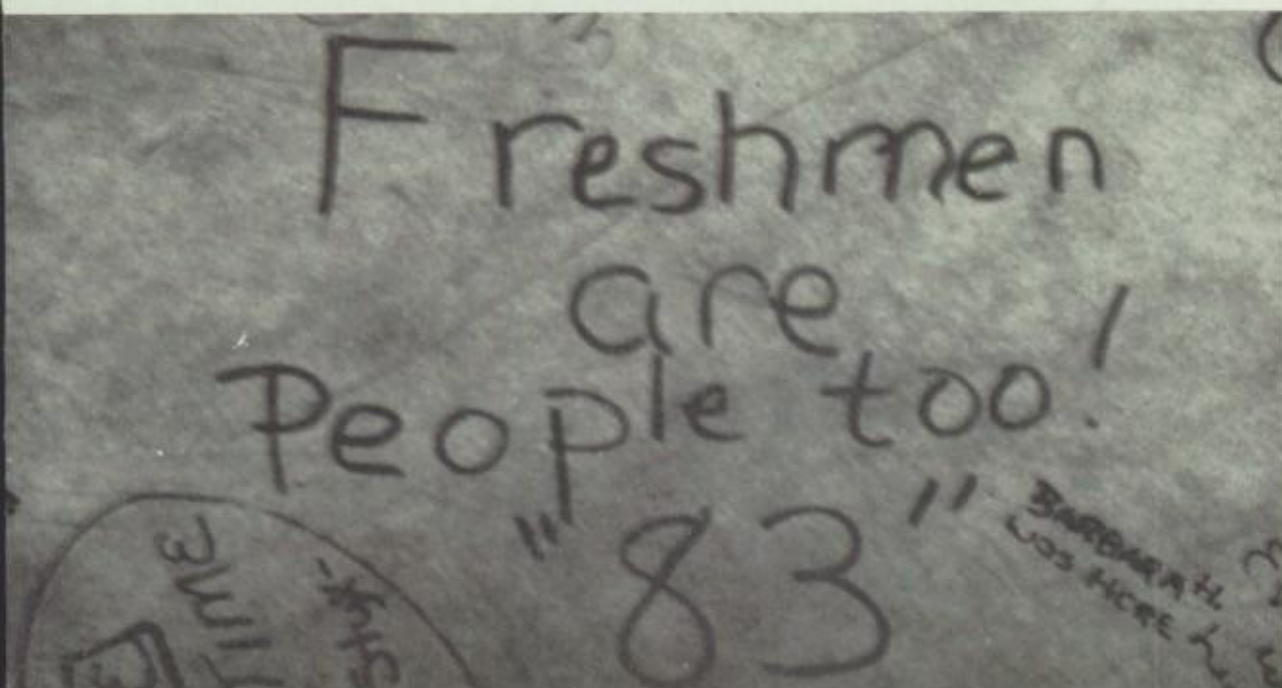 Freshmen
are
People too!
"83"
BARBARA H.
WAS HERE
TIME